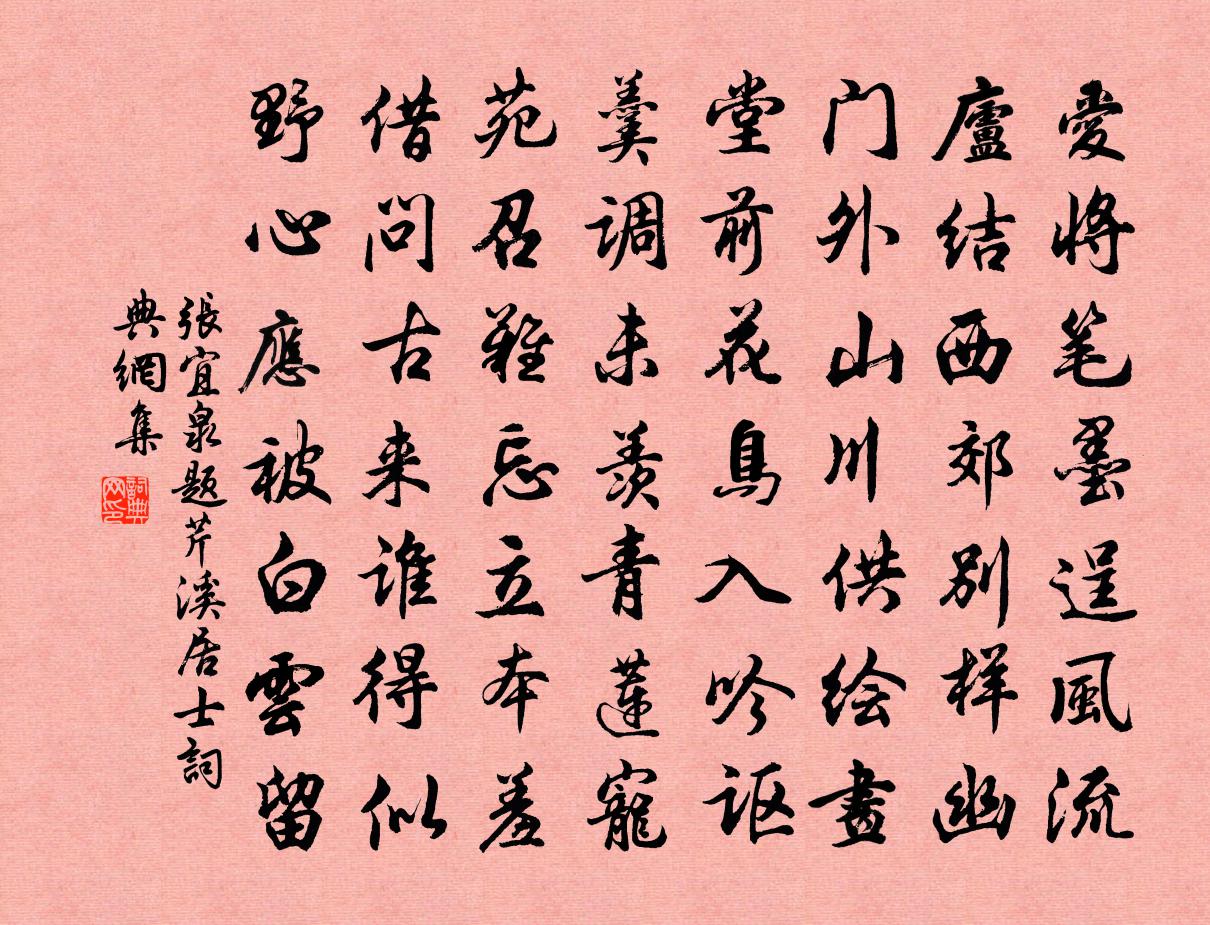 愛將笔墨逞風流
廬结西郊别样幽
门外山川供绘畫
堂前花鳥入吟讴
羹调未羨青蓮寵
苑召難忘立本羞
借问古来谁得似
野心應被白雲留
張宜泉题芹溪居士詞
典網集
詞典网印